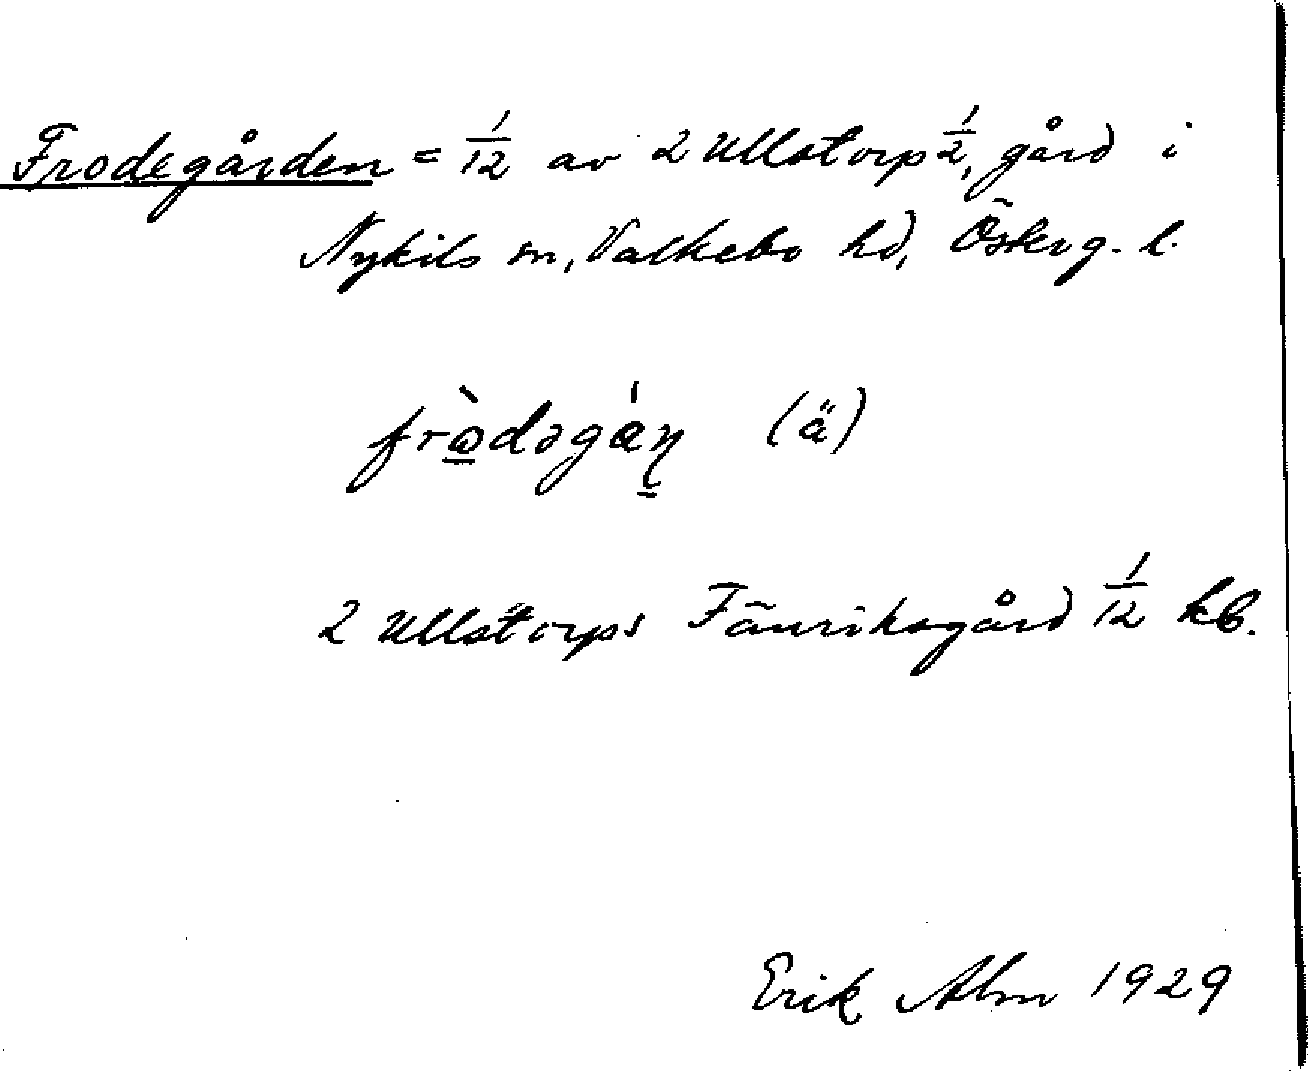 Frodegården = 1/12 av 2 Ullstorp 1/2, gård i
Nykils sn, Valkebo hd, Österg. l.
frò̱dəgáṉ (ä)
2 Ullstorps Fänriksgård 1/12 kb.
Erik Alm 1929